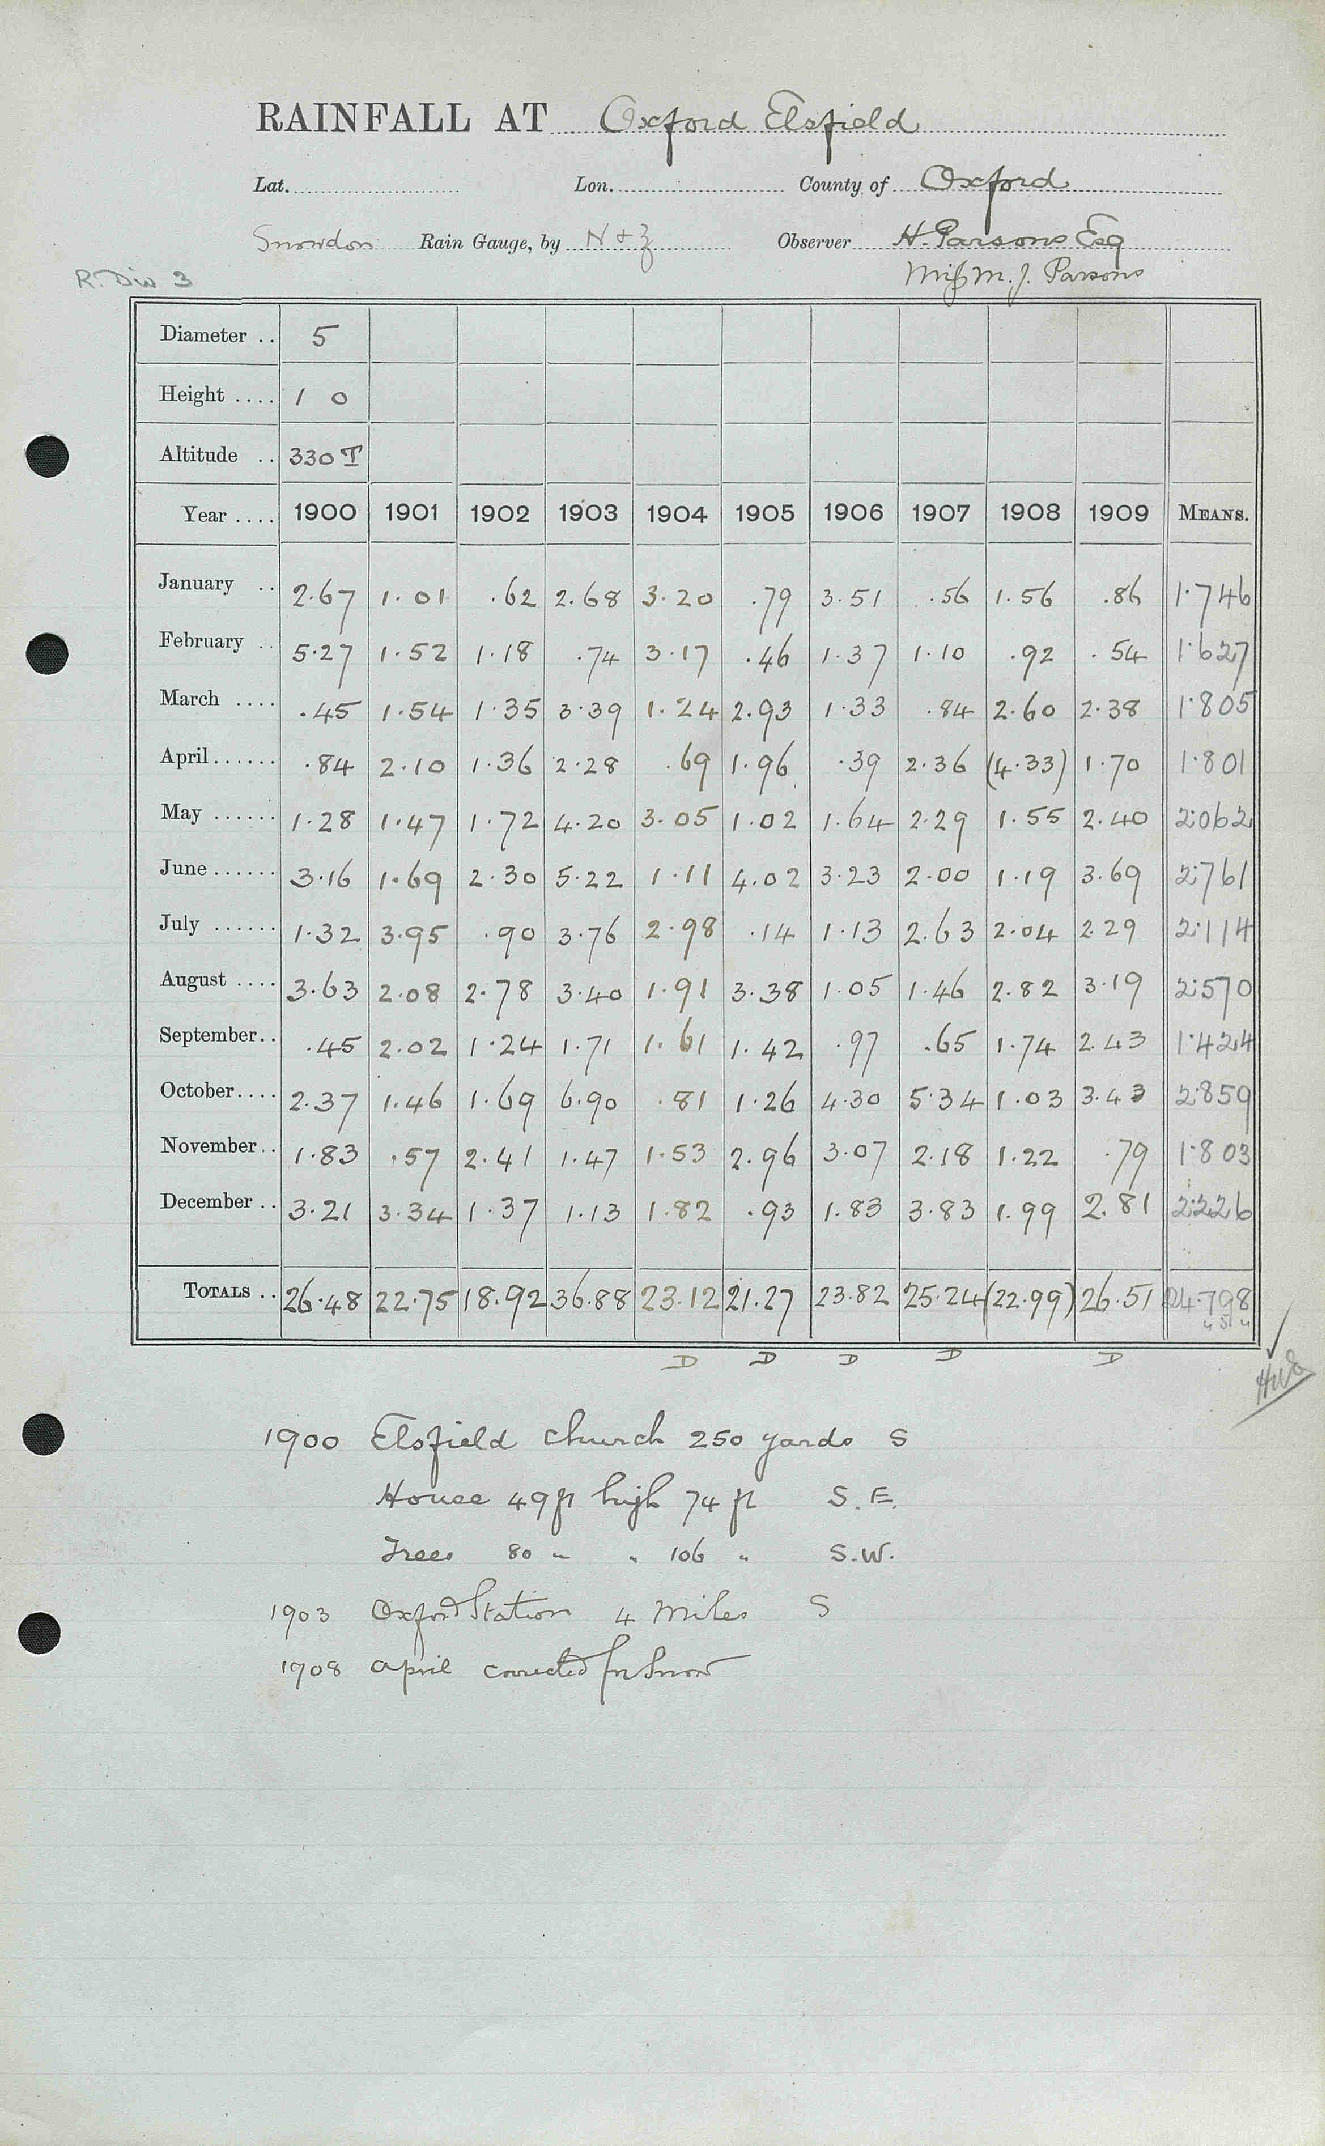 RAINFALL AT Oxford Elsfield
Lat. Lon. County of Oxford
Snowdon Rain Gauge, by N & Z Observer H. Parsons Esq
R. Div 3 Miss M. J. Parsons
Diameter .. 5
Height .... 1 0
Altitude .. 330 T
Year .... 1900 1901 1902 1903 1904 1905 1906 1907 1908 1909 MEANS.
January .. 2.67 1.01 .62 2.68 3.20 .79 3.51 .56 1.56 .86 1.746
February .. 5.27 1.52 1.18 .74 3.17 .46 1.37 1.10 .92 .54 1.627
March .... .45 1.54 1.35 3.39 1.24 2.93 1.33 .84 2.60 2.38 1.805
April...... .84 2.10 1.36 2.28 .69 1.96 .39 2.36 (4.33) 1.70 1.801
May ...... 1.28 1.47 1.72 4.20 3.05 1.02 1.64 2.29 1.55 2.40 2.062
June ...... 3.16 1.69 2.30 5.22 1.11 4.02 3.23 2.00 1.19 3.69 2.761
July ...... 1.32 3.95 .90 3.76 2.98 .14 1.13 2.63 2.04 2.29 2.114
August .... 3.63 2.08 2.78 3.40 1.91 3.38 1.05 1.46 2.82 3.19 2.570
September.. .45 2.02 1.24 1.71 1.61 1.42 .97 .65 1.74 2.43 1.424
October.... 2.37 1.46 1.69 6.90 .81 1.26 4.30 5.34 1.03 3.43 2.859
November.. 1.83 .57 2.41 1.47 1.53 2.96 3.07 2.18 1.22 .79 1.803
December .. 3.21 3.34 1.37 1.13 1.82 .93 1.83 3.83 1.99 2.81 2.226
TOTALS .. 26.48 22.75 18.92 36.88 23.12 21.27 23.82 25.24 (22.99) 26.51 24.798
D D D D D
1900 Elsfield Church 250 yards S
House 49 ft high 74 ft S.E.
Trees 80 " " 106 " S.W.
1903 Oxford Station 4 Miles S
1908 April corrected for Snow